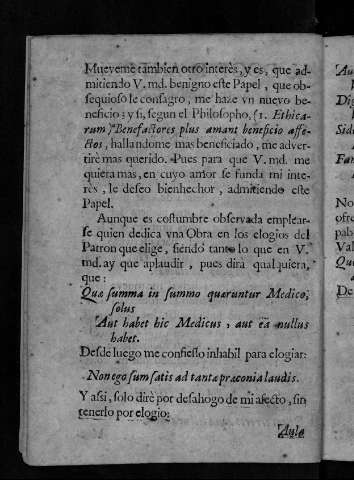 Mueveme tambien otro interès, y es, que ad-
mitiendo V. md. benigno este Papel, que ob-
sequioso le consagro, me haze vn nuevo be-
neficio; y si, segun el Philosopho, (1. Ethica-
rum) Benefactores plus amant beneficio affe-
ctos, hallandome mas beneficiado, me adver-
tirè mas querido. Pues para que V. md. me
quiera mas, en cuyo amor se funda mi inte-
rès, le deseo bienhechor, admitiendo este
Papel.
Aunque es costumbre observada emplear-
se quien dedica vna Obra en los elogios del
Patron que elige, siendo tanto lo que en V.
md. ay que aplaudir, pues dirà qualquiera,
que:
Quæ summa in summo quæruntur Medico,
solus
Aut habet hic Medicus, aut ea nullus
habet.
Desde luego me confiesso inhabil para elogiar:
Non ego sum satis ad tantæ præconia laudis.
Y assi, solo dirè por desahogo de mi afecto, sin
tenerlo por elogio:
Aula